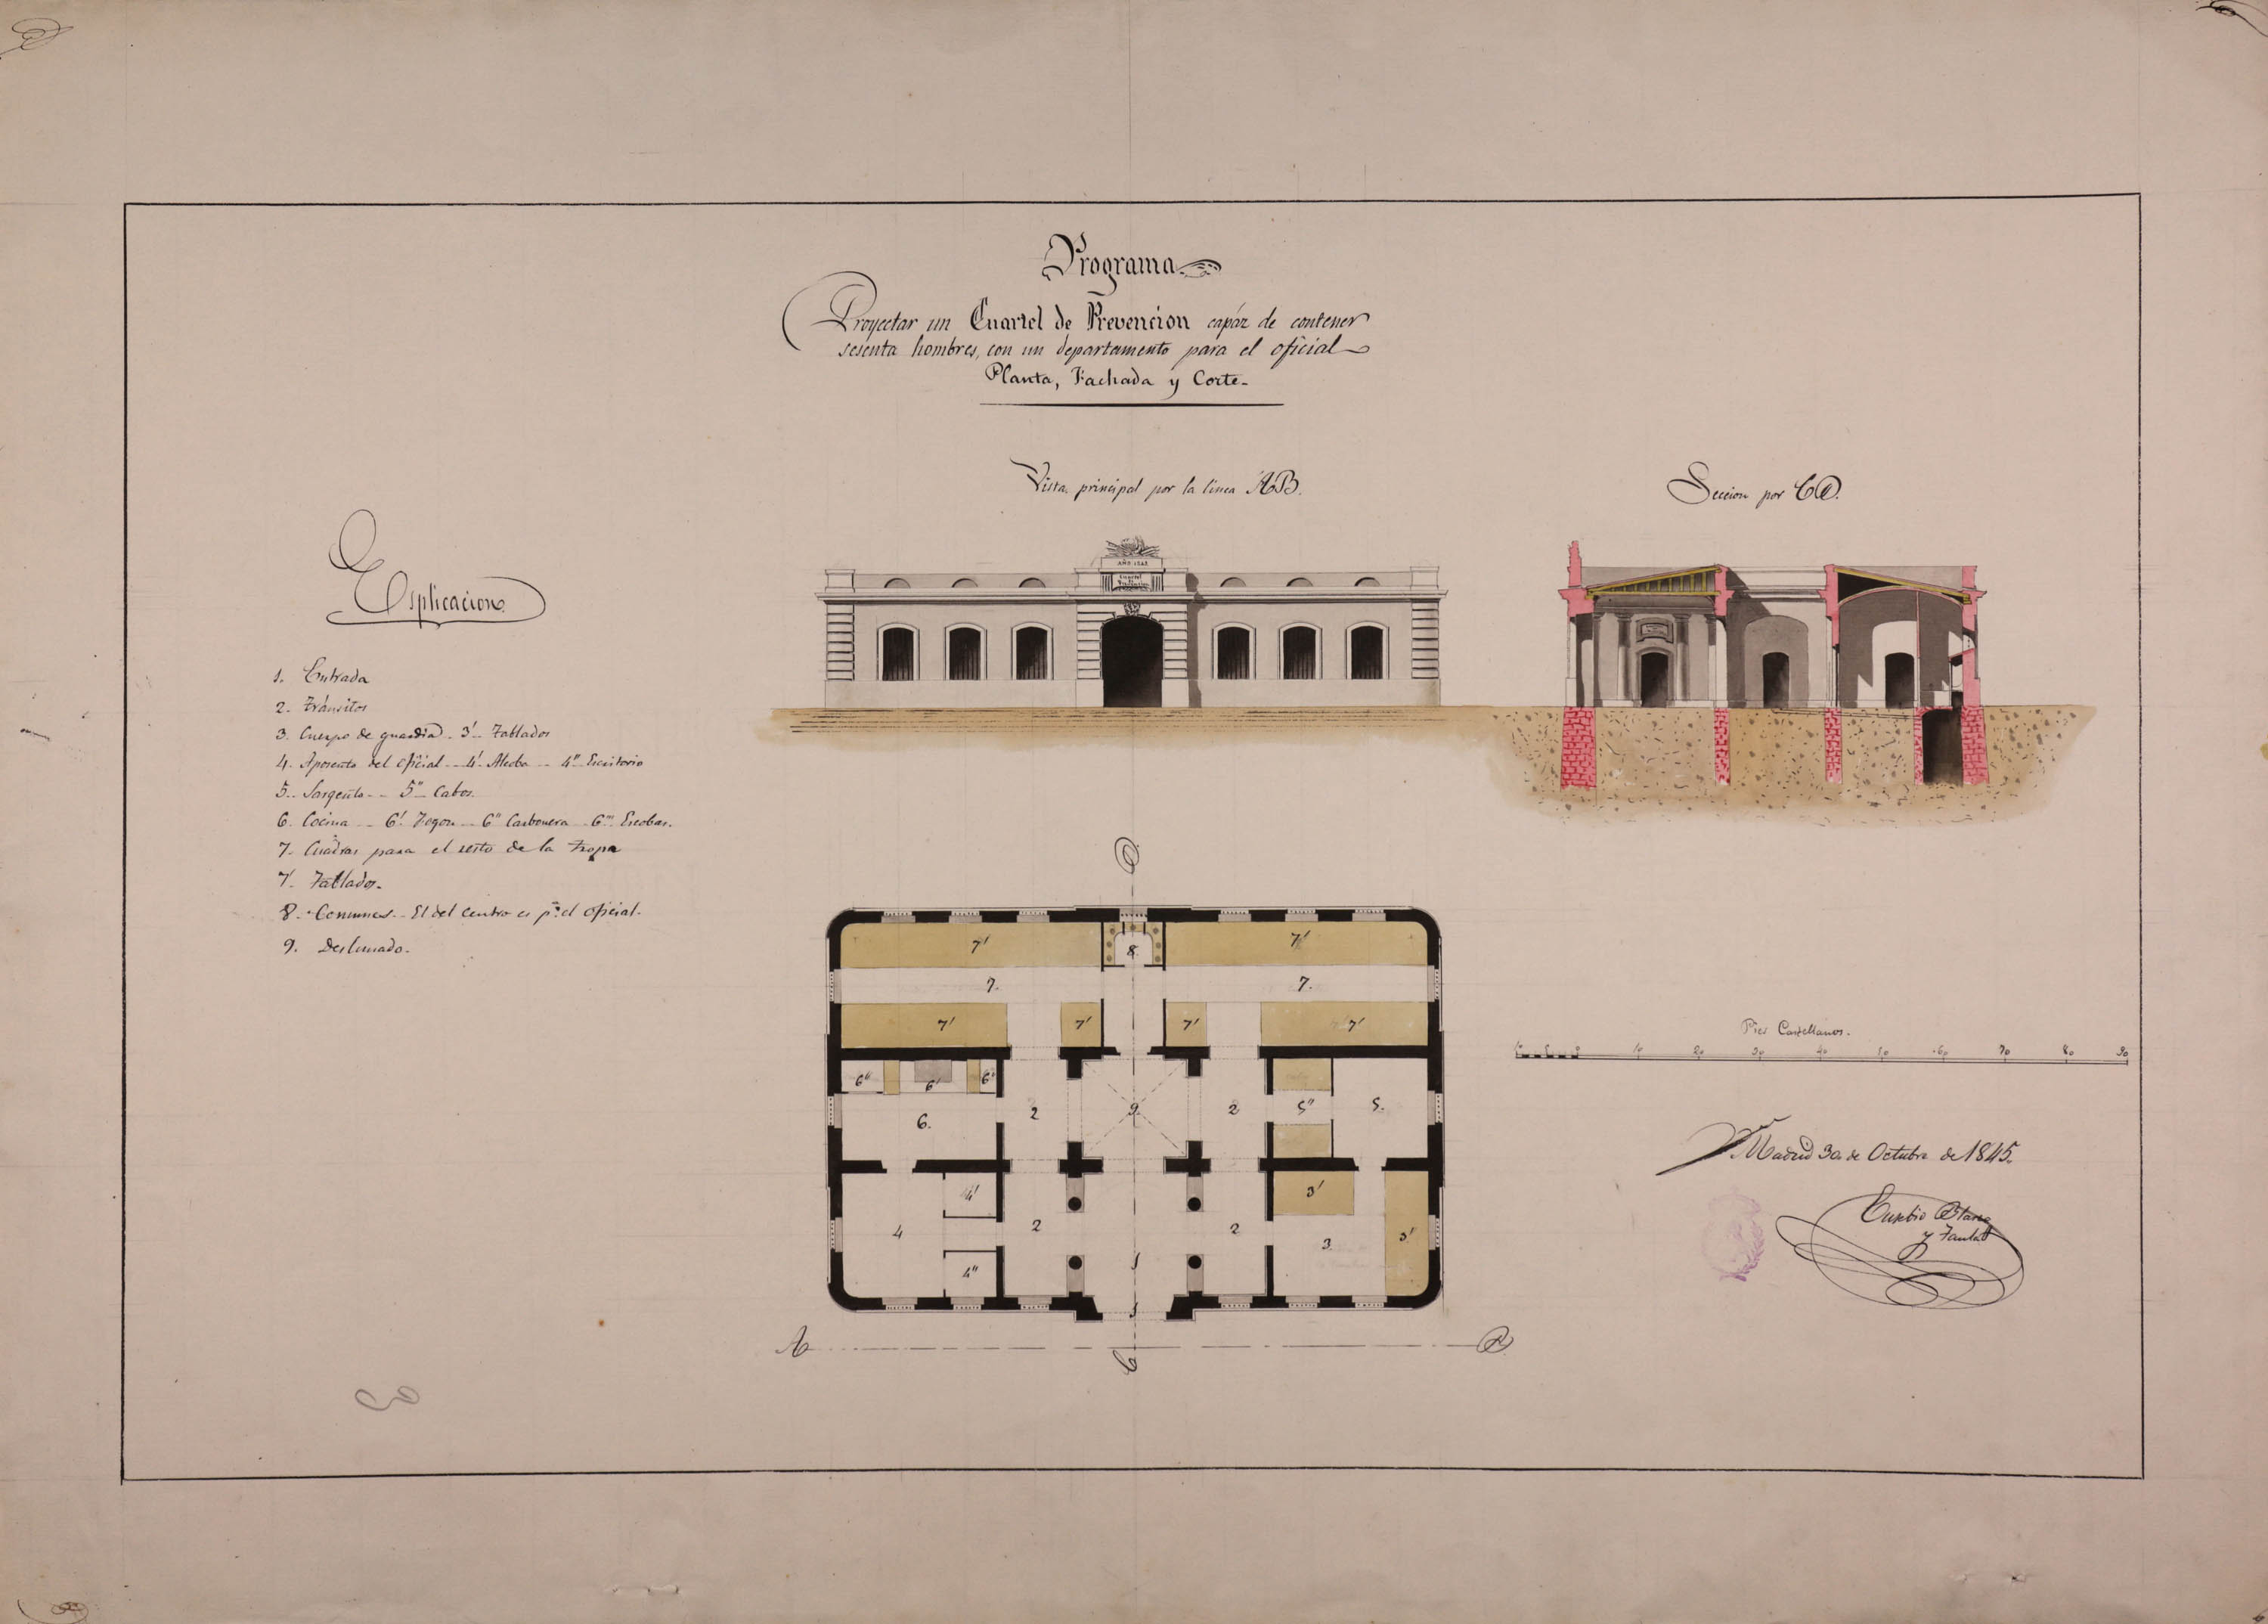 Programa
Proyectar un Cuartel de Prevencion capáz de contener
sesenta hombres, con un departamento para el oficial
Planta, Fachada y Corte.
Vista principal por la linea AB.
Seccion por CD.
AÑO
Cuartel
de
Prevencion
Esplicacion
1. Entrada
2. Tránsitos
3. Cuerpo de guardia. 3' Tablados
4. Aposento del oficial - 4' Alcoba - 4" Escritorio
5. Sargento - 5" Cabos.
6. Cocina - 6' Fogon - 6" Carbonera - 6''' Escobas.
7. Cuadras para el resto de la tropa
7' Tablados.
8. Comunes - El del centro es pª el oficial.
9. Deslunado.
D
7' 8 7'
7. 7.
7' 7' 7' 7'
6" 6' 6"
6. 2 9. 2 5" 5.
4' 3'
4 2 2 3 3'
4" 1
1
A B
C
Pies Castellanos.
10 5 0 10 20 30 40 50 60 70 80 90
Madrid 30 de Octubre de 1845.
Eusebio Blanco
y